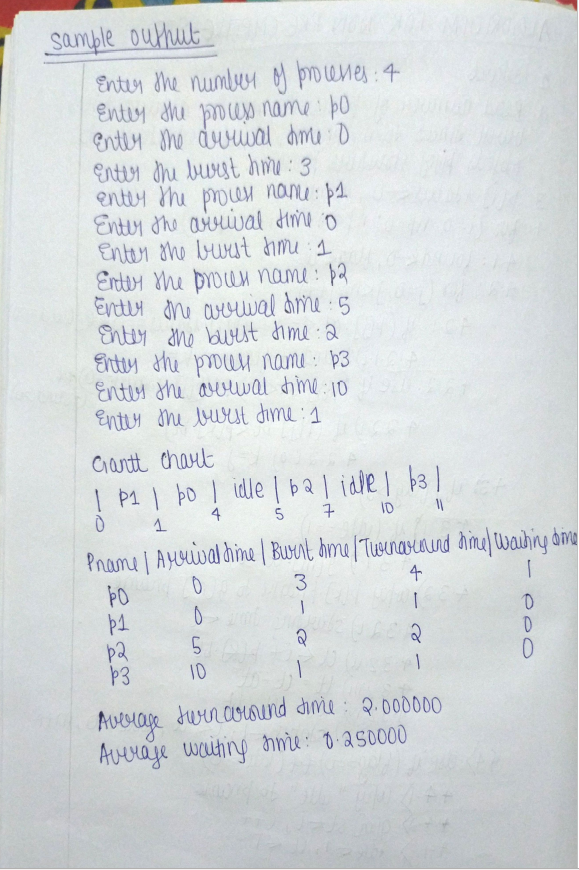 Sample output
Enter the number of processes : 4
Enter the process name : p0
Enter the arrival time 0
Enter the burst time : 3
enter the process name : p1
Enter the arrival time : 0
Enter the burst time : 1
Enter the process name : p2
Enter the arrival time : 5
Enter the burst time : 2
Enter the process name : p3
Enter the arrival time : 10
Enter the burst time : 1
Gantt chart
| p1 | p0 | idle | p2 | idle | p3 |
0 1 4 5 7 10 11
Pname | Arrival time | Burst time | Turnaround time | Waiting time
p0 0 3 4 1
p1 0 1 1 0
p2 5 2 2 0
p3 10 1 1 0
Average turnaround time : 2.000000
Average waiting time : 0.250000